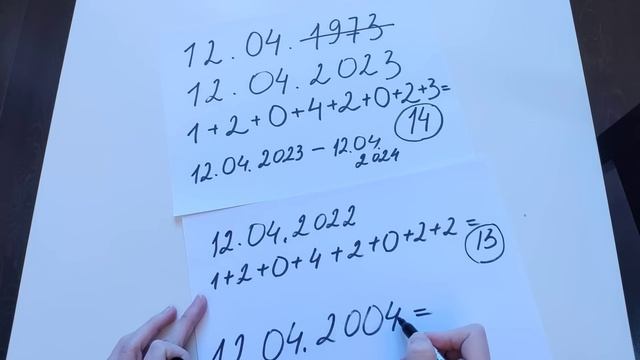 12.04.1973
12.04.2023
1+2+0+4+2+0+2+3=
14
12.04.2023 - 12.04.
2024
12.04.2022
1+2+0+4+2+0+2+2=
13
12.04.2004=